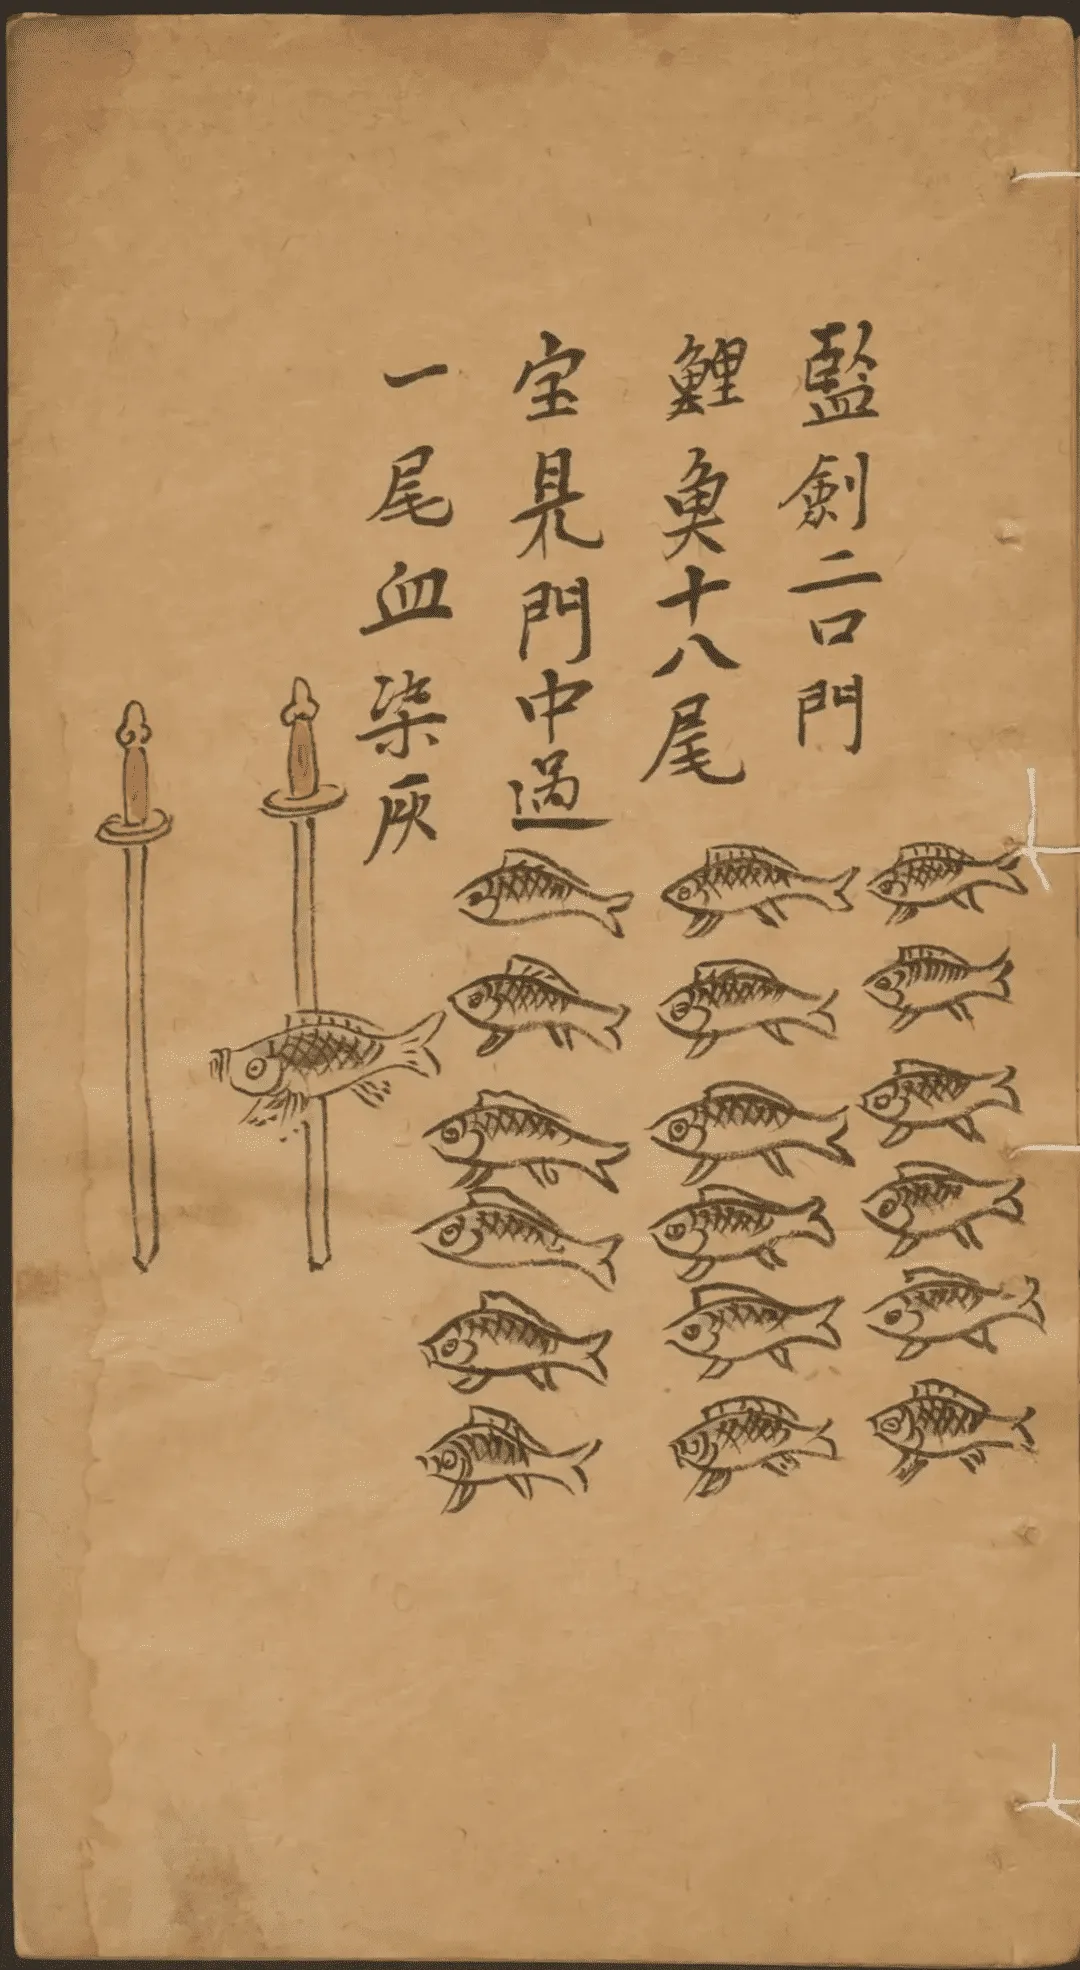 監劍二口門
鯉魚十八尾
宝見門中過
一尾血染灰